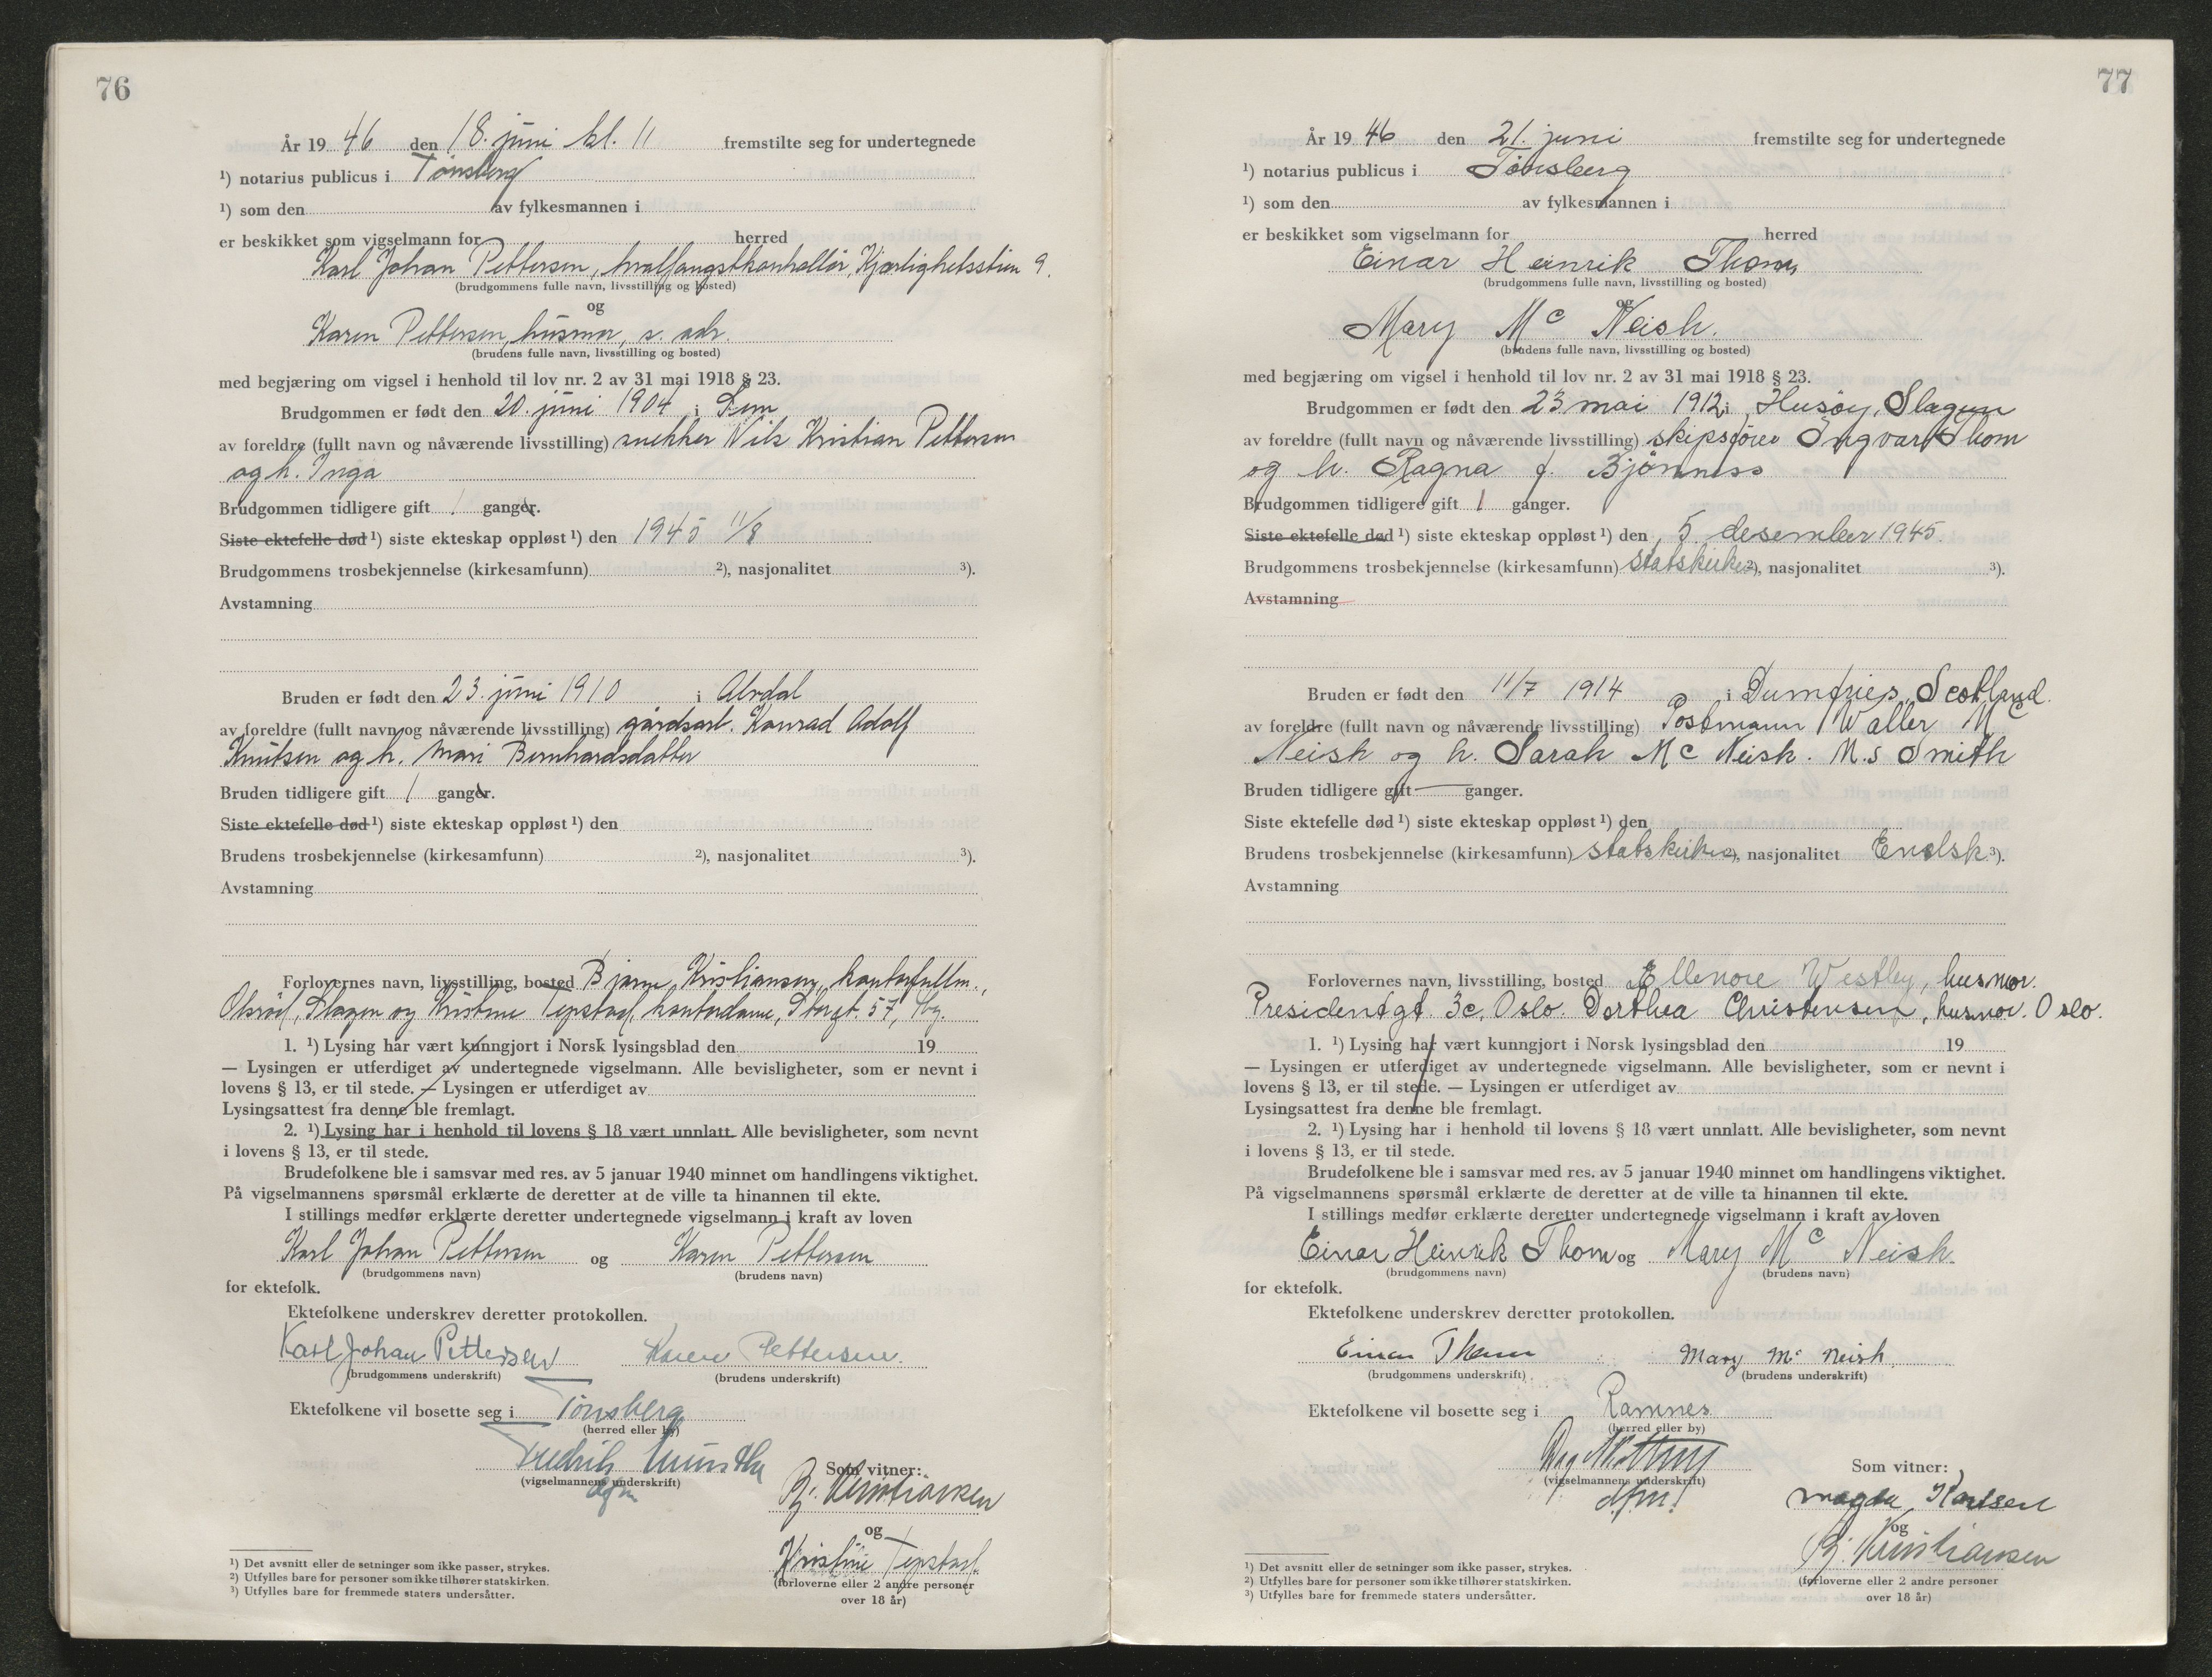 76
År 1946 den 18. juni kl. 11 fremstilte seg for undertegnede
¹) notarius publicus i Tønsberg
¹) som den av fylkesmannen i
er beskikket som vigselmann for herred
Karl Johan Pettersen, hvalfangstkontrollør, Kjærlighetsstien 9.
(brudgommens fulle navn, livsstilling og bosted)
og
Karen Pettersen, husmor, s. adr.
(brudens fulle navn, livsstilling og bosted)
med begjæring om vigsel i henhold til lov nr. 2 av 31 mai 1918 § 23.
Brudgommen er født den 20. juni 1904 i Sem
av foreldre (fullt navn og nåværende livsstilling) snekker Nils Kristian Pettersen
og h. Inga
Brudgommen tidligere gift 1 ganger.
Siste ektefelle død ¹) siste ekteskap oppløst ¹) den 1945 11/8
Brudgommens trosbekjennelse (kirkesamfunn) ²), nasjonalitet ³).
Avstamning
Bruden er født den 23. juni 1910 i Alvdal
av foreldre (fullt navn og nåværende livsstilling) gårdsarb. Konrad Adolf
Knutsen og h. Mari Bernhardsdatter
Bruden tidligere gift 1 ganger.
Siste ektefelle død ¹) siste ekteskap oppløst ¹) den
Brudens trosbekjennelse (kirkesamfunn) ²), nasjonalitet ³).
Avstamning
Forlovernes navn, livsstilling, bosted Bjarne Kristiansen, kontorfullm.,
Slagen og Kristine Tepstad, kontordame, Storgt. 57, Tbg.
1. ¹) Lysing har vært kunngjort i Norsk lysingsblad den 19
— Lysingen er utferdiget av undertegnede vigselmann. Alle bevisligheter, som er nevnt i
lovens § 13, er til stede. — Lysingen er utferdiget av
Lysingsattest fra denne ble fremlagt.
2. ¹) Lysing har i henhold til lovens § 18 vært unnlatt. Alle bevisligheter, som nevnt
i lovens § 13, er til stede.
Brudefolkene ble i samsvar med res. av 5 januar 1940 minnet om handlingens viktighet.
På vigselmannens spørsmål erklærte de deretter at de ville ta hinannen til ekte.
I stillings medfør erklærte deretter undertegnede vigselmann i kraft av loven
Karl Johan Pettersen og Karen Pettersen
(brudgommens navn) (brudens navn)
for ektefolk.
Ektefolkene underskrev deretter protokollen.
Karl Johan Pettersen Karen Pettersen.
(brudgommens underskrift) (brudens underskrift)
Ektefolkene vil bosette seg i Tønsberg
(herred eller by)
Fredrik
(vigselmannens underskrift)
dfm
Som vitner:
Bj. Kristiansen
og
Kristine Tepstad.
(forloverne eller 2 andre personer
over 18 år)
¹) Det avsnitt eller de setninger som ikke passer, strykes.
²) Utfylles bare for personer som ikke tilhører statskirken.
³) Utfylles bare for fremmede staters undersåtter.
77
År 1946 den 21. juni fremstilte seg for undertegnede
¹) notarius publicus i Tønsberg
¹) som den av fylkesmannen i
er beskikket som vigselmann for herred
Einar Heinrik Thom
(brudgommens fulle navn, livsstilling og bosted)
og
Mary Mc Neish.
(brudens fulle navn, livsstilling og bosted)
med begjæring om vigsel i henhold til lov nr. 2 av 31 mai 1918 § 23.
Brudgommen er født den 23 mai 1912 i Husøy, Slagen
av foreldre (fullt navn og nåværende livsstilling) skipsfører Ingvart Thom
og h. Ragna f. Bjønness
Brudgommen tidligere gift 1 ganger.
Siste ektefelle død ¹) siste ekteskap oppløst ¹) den 5. desember 1945.
Brudgommens trosbekjennelse (kirkesamfunn) statskirken ²), nasjonalitet ³).
Avstamning
Bruden er født den 11/7 1914 i Dumfries, Scotland.
av foreldre (fullt navn og nåværende livsstilling) Postmann Walter Mc
Neish og h. Sarah Mc Neish. M.S Smith
Bruden tidligere gift — ganger.
Siste ektefelle død ¹) siste ekteskap oppløst ¹) den
Brudens trosbekjennelse (kirkesamfunn) statskirken ²), nasjonalitet Engelsk ³).
Avstamning
Forlovernes navn, livsstilling, bosted Ellenore Westby, husmor.
Presidentgt. 3c, Oslo. Dorthea Christensen, husmor. Oslo.
1. ¹) Lysing har vært kunngjort i Norsk lysingsblad den 19
— Lysingen er utferdiget av undertegnede vigselmann. Alle bevisligheter, som er nevnt i
lovens § 13, er til stede. — Lysingen er utferdiget av
Lysingsattest fra denne ble fremlagt.
2. ¹) Lysing har i henhold til lovens § 18 vært unnlatt. Alle bevisligheter, som nevnt
i lovens § 13, er til stede.
Brudefolkene ble i samsvar med res. av 5 januar 1940 minnet om handlingens viktighet.
På vigselmannens spørsmål erklærte de deretter at de ville ta hinannen til ekte.
I stillings medfør erklærte deretter undertegnede vigselmann i kraft av loven
Einar Heinrik Thom og Mary Mc Neish.
(brudgommens navn) (brudens navn)
for ektefolk.
Ektefolkene underskrev deretter protokollen.
Einar Thom Mary Mc Neish.
(brudgommens underskrift) (brudens underskrift)
Ektefolkene vil bosette seg i Ramnes
(herred eller by)
Dag
(vigselmannens underskrift)
dfm.
Som vitner:
Magda Karlsen
og
Bj. Kristiansen
(forloverne eller 2 andre personer
over 18 år)
¹) Det avsnitt eller de setninger som ikke passer, strykes.
²) Utfylles bare for personer som ikke tilhører statskirken.
³) Utfylles bare for fremmede staters undersåtter.